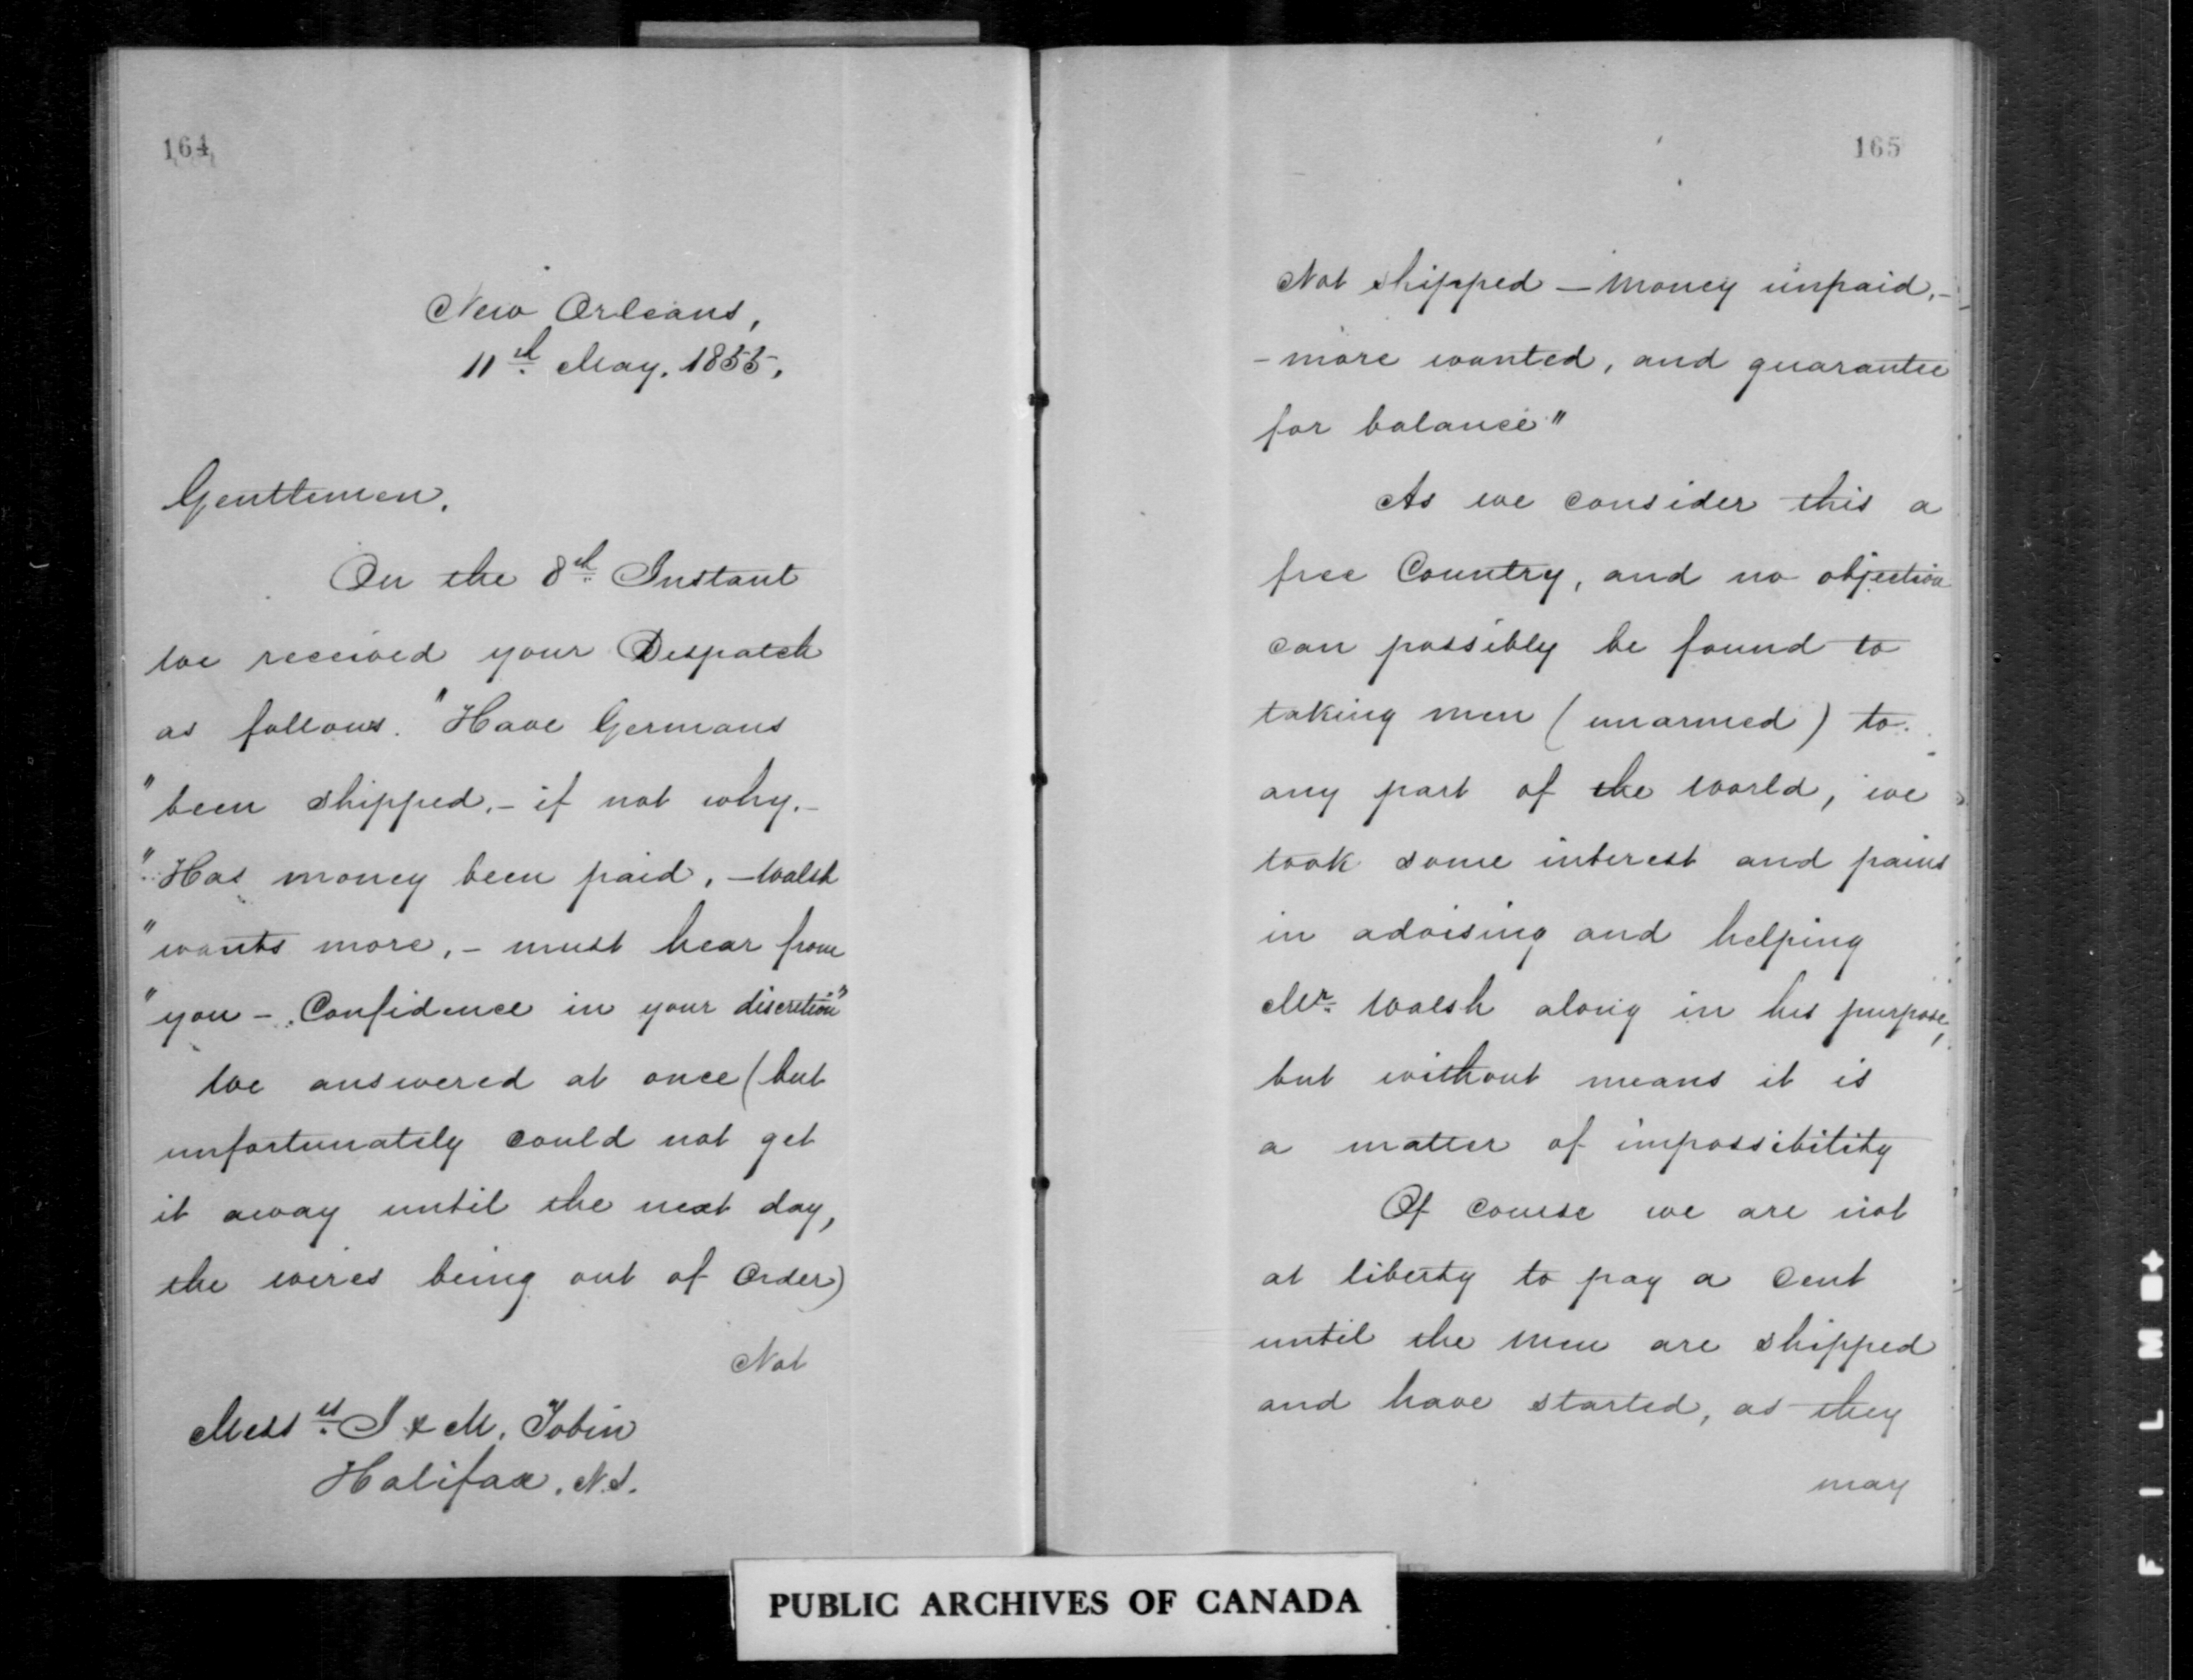 164
New Orleans,
11th May, 1855,
Gentlemen,
On the 8th Instant
we received your Despatch
as follows. "Have Germans
"been shipped, - if not why. -
"Has money been paid, - Walsh
"wants more, - must hear from
"you - Confidence in your discretion"
We answered at once (but
unfortunately could not get
it away until the next day,
the wires being out of Order)
Not
Messrs J & M. Tobin
Halifax, N.S.
165
Not shipped - Money unpaid, -
- more wanted, and guarantee
for balance"
As we consider this a
free Country, and no objection
can possibly be found to
taking men (unarmed) to
any part of the World, we
took some interest and pains
in advising and helping
Mr. Walsh along in his purpose,
but without means it is
a matter of impossibility
Of course we are not
at liberty to pay a Cent
until the Men are shipped
and have started, as they
may
PUBLIC ARCHIVES OF CANADA
FILM